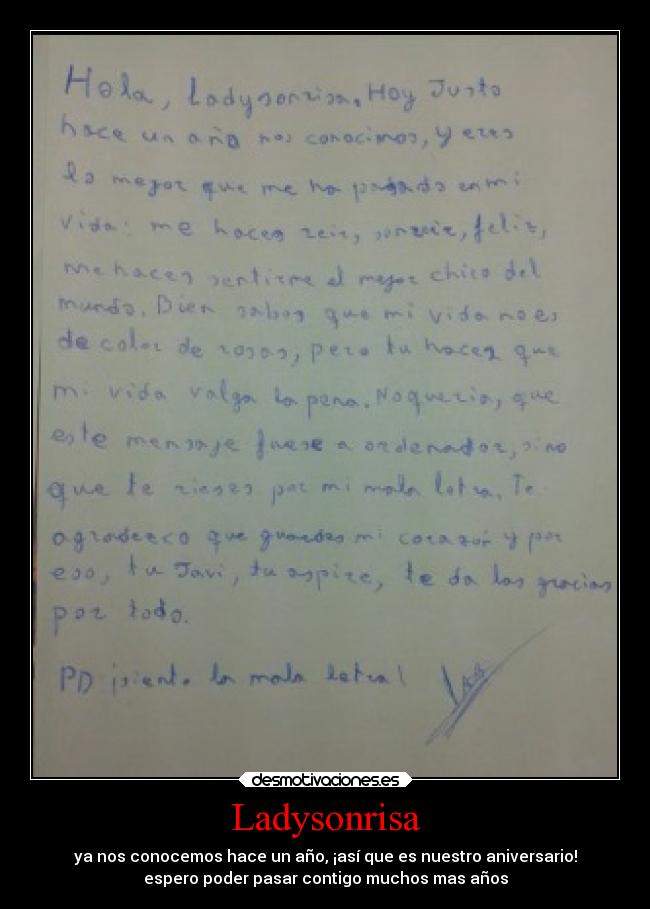 Hola, Ladysonrisa. Hoy Justo
hace un año nos conocimos, y eres
lo mejor que me ha pasado en mi
vida: me haces reir, sonreir, feliz,
me haces sentirme el mejor chico del
mundo. Bien sabes que mi vida no es
de color de rosas, pero tu haces que
mi vida valga la pena. No queria, que
este mensaje fuese a ordenador, sino
que te rieses por mi mala letra. Te
agradezco que guardes mi corazón y por
eso, tu Javi, tu aspire, te da las gracias
por todo.
PD ¡siento la mala letra!
desmotivaciones.es
Ladysonrisa
ya nos conocemos hace un año, ¡así que es nuestro aniversario!
espero poder pasar contigo muchos mas años